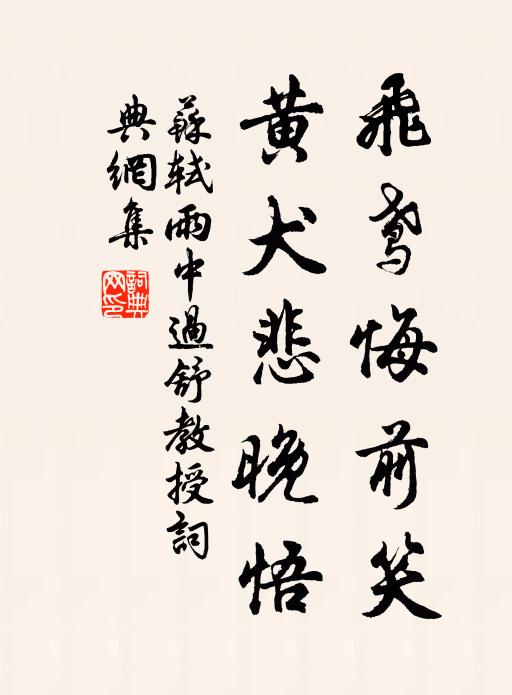 飛鳶悔前笑
黄犬悲晚悟
蘇軾雨中過舒教授詞
典網集
詞典網印